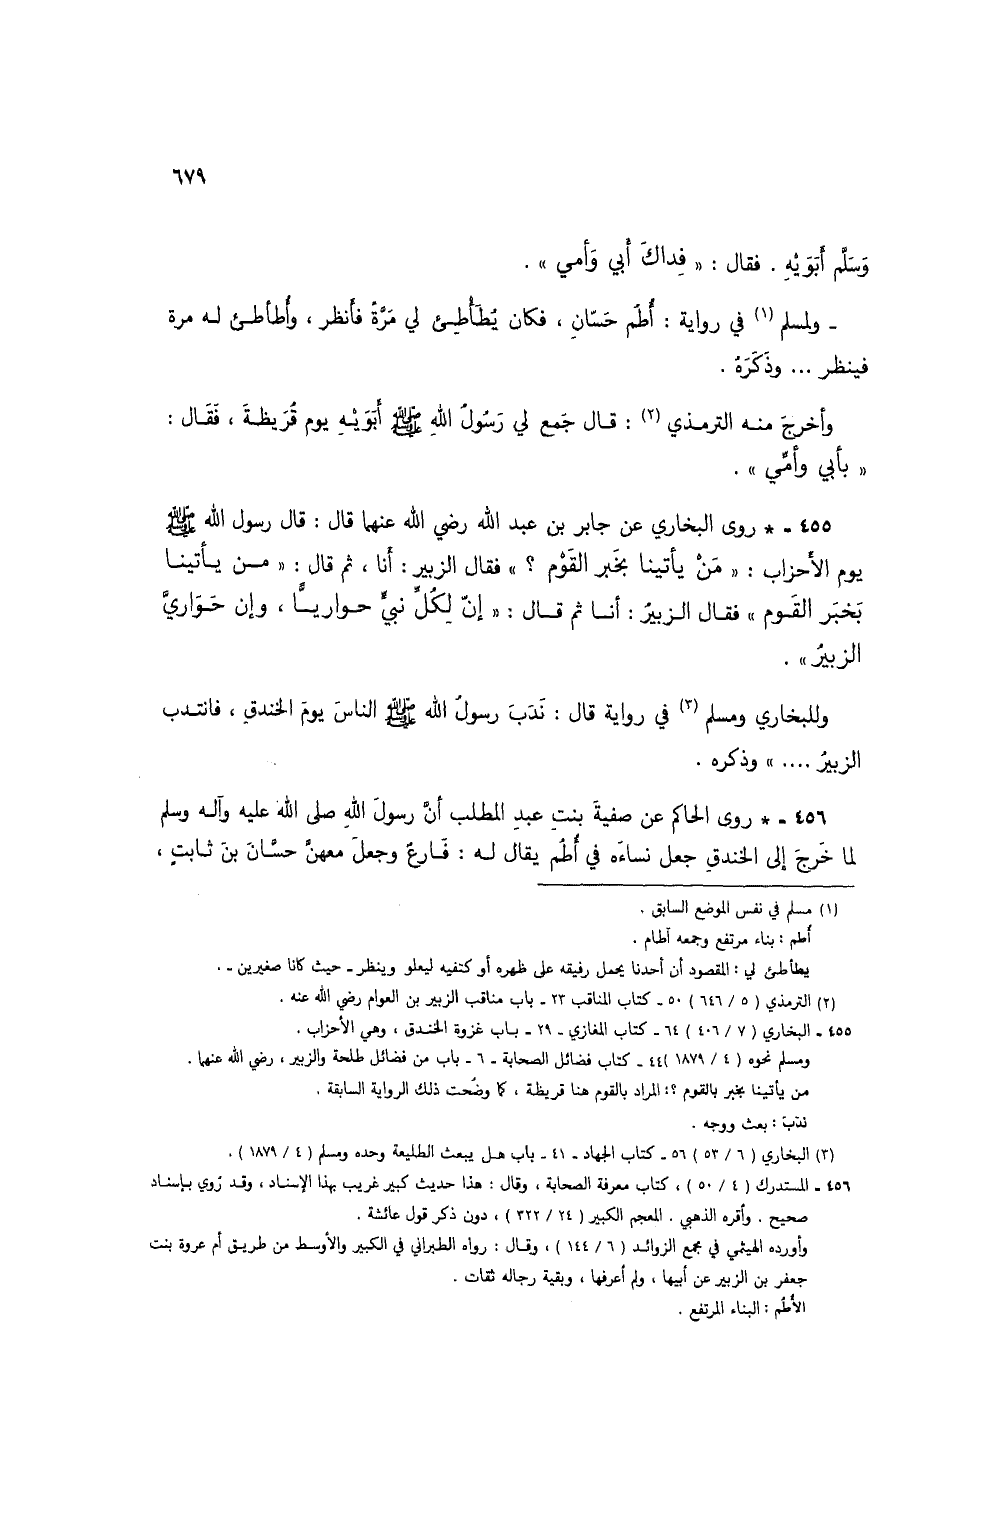 ٦٧٩
وَسَلَّم أَبَوَيْهِ . فقال : « فِداكَ أَبي وَأمي » .
ـ ولمسلم (١) في رواية : أُطُم حَسّانِ ، فكان يُطَأْطِئ لي مَرَّةً فأنظر ، وأُطأطئ له مرة
فينظر ... وذَكَرَهُ .
وأخرجَ منه الترمذي (٢) : قال جَمع لي رَسُولُ اللهِ ﷺ أَبَوَيْهِ يوم قُرَيظةَ ، فَقَال :
« بأبي وأمّي » .
٤٥٥ ـ * روى البخاري عن جابر بن عبد الله رضي الله عنهما قال : قال رسول الله ﷺ
يوم الأحزاب : « مَنْ يأتينا بخَبر القَوْم ؟ » فقال الزبير : أنا ، ثم قال : « من يأتينا
بَخبَر القَوم » فقال الزبيرُ : أنا ثم قال : « إنّ لِكُلِّ نبيٍّ حواريًّا ، وإن حَوَاريَّ
الزبيرُ» .
وللبخاري ومسلم (٣) في رواية قال : نَدَبَ رسولُ الله ﷺ الناسَ يومَ الخندقِ ، فانتدب
الزبيرُ .... » وذكره .
٤٥٦ ـ * روى الحاكم عن صفيةَ بنتِ عبدِ المطلب أنَّ رسولَ اللهِ صلى الله عليه وآله وسلم
لما خَرجَ إلى الخندقِ جعل نساءَه في أُطُم يقال له : فَارعٌ وجعلَ معهنَّ حسَّانَ بنَ ثابتٍ ،
(١) مسلم في نفس الموضع السابق .
أُطم : بناء مرتفع وجمعه آطام .
يطأطئ لي : المقصود أن أحدنا يحمل رفيقه على ظهره أو كتفيه ليعلو وينظر ـ حيث كانا صغيرين ـ .
(٢) الترمذي ( ٥ / ٦٤٦ ) ٥٠ ـ كتاب المناقب ٢٣ ـ باب مناقب الزبير بن العوام رضي الله عنه .
٤٥٥ ـ البخاري ( ٧ / ٤٠٦ ) ٦٤ ـ كتاب المغازي ـ ٢٩ ـ باب غزوة الخندق ، وهي الأحزاب .
ومسلم نحوه ( ٤ / ١٨٧٩ )٤٤ ـ كتاب فضائل الصحابة ـ ٦ ـ باب من فضائل طلحة والزبير ، رضي الله عنهما .
من يأتينا بخبر بالقوم ؟: المراد بالقوم هنا قريظة ، كما وضُحت ذلك الرواية السابقة .
ندَبَ : بعث ووجه .
(٣) البخاري ( ٦ / ٥٣ ) ٥٦ ـ كتاب الجهاد ـ ٤١ ـ باب هل يبعث الطليعة وحده ومسلم ( ٤ / ١٨٧٩ ) .
٤٥٦ ـ المستدرك ( ٤ / ٥٠ ) ، كتاب معرفة الصحابة ، وقال : هذا حديث كبير غريب بهذا الإسناد ، وقد رُوي بإسناد
صحيح . وأقره الذهبي . المعجم الكبير ( ٢٤ / ٣٢٢ ) ، دون ذكر قول عائشة .
وأورده الهيثمي في مجمع الزوائد ( ٦ / ١٤٤ ) ، وقال : رواه الطبراني في الكبير والأوسط من طريق أم عروة بنت
جعفر بن الزبير عن أبيها ، ولم أعرفها ، وبقية رجاله ثقات .
الأُطُم : البناء المرتفع .